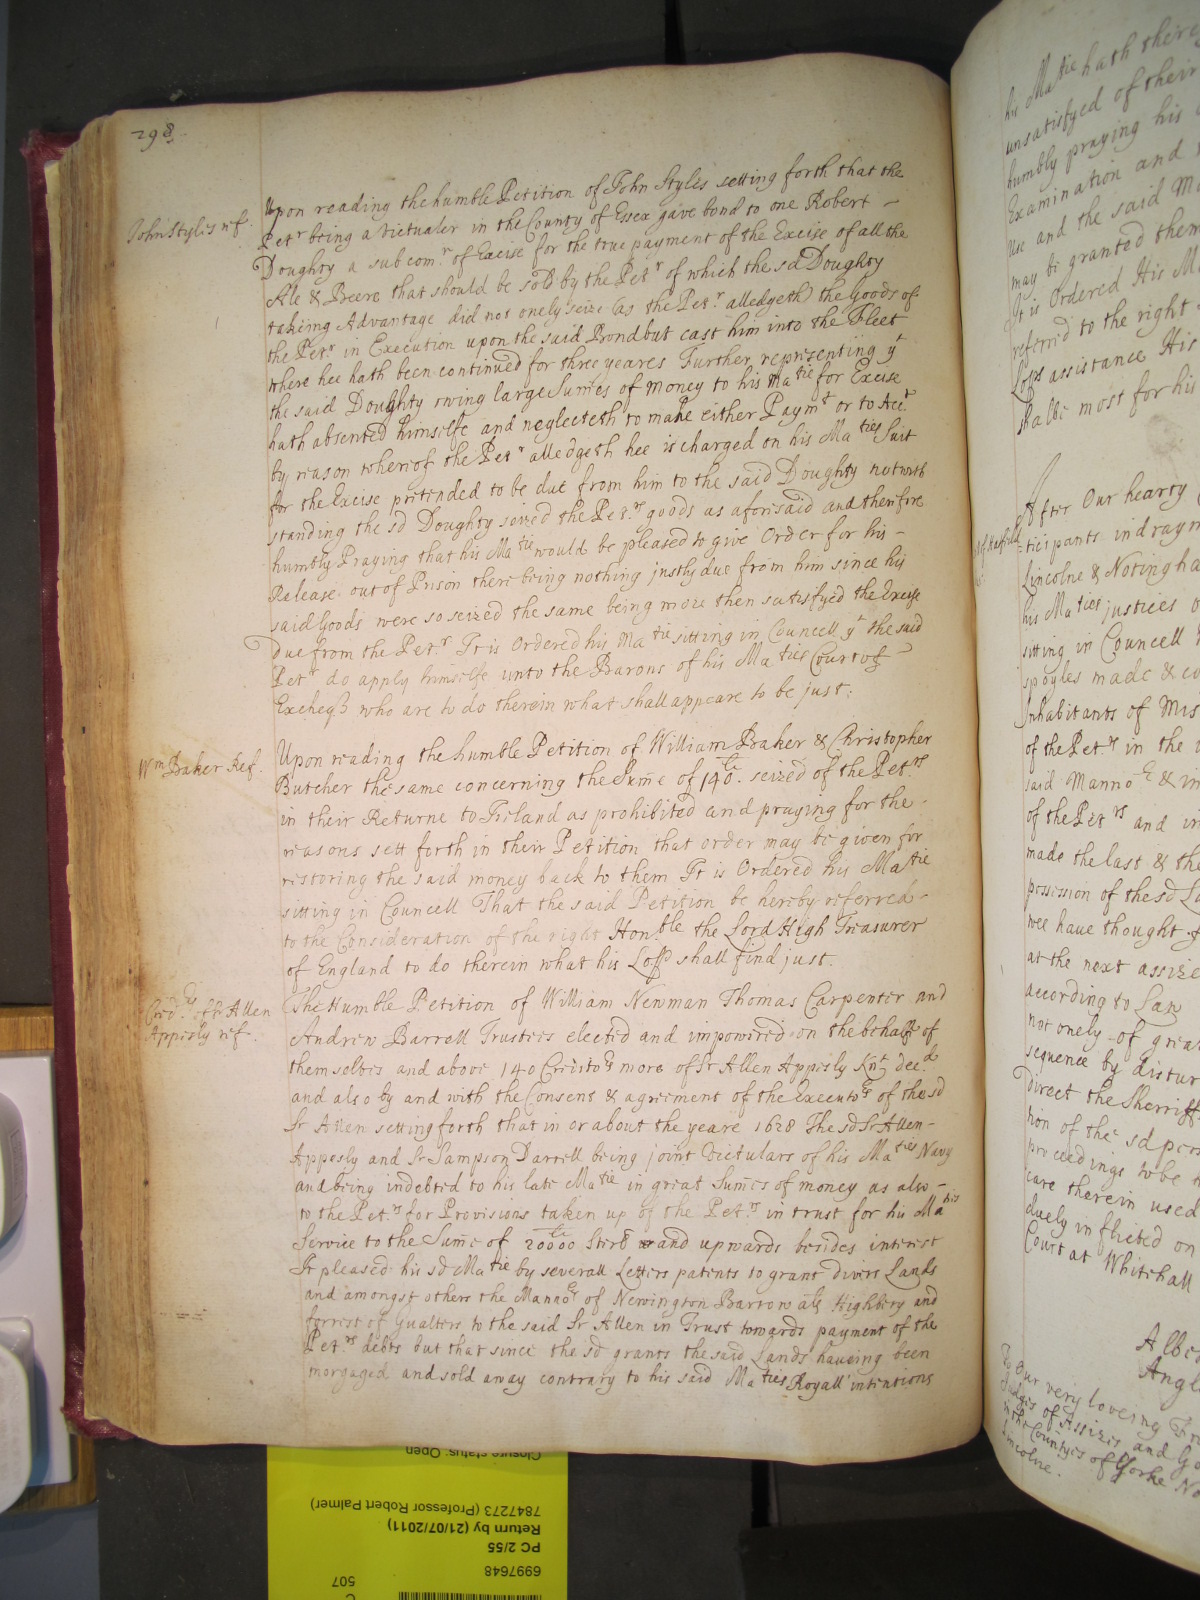 298
John Styles ref.
Upon reading the humble Petition of John Styles setting forth that the
Petr being a victualer in the County of Essex gave bond to one Robert -
Doughty a sub comr. of Excise for the true payment of the Excise of all the
Ale & Beere that should be sold by the Petr of which the sd Doughty
takeing Advantage did not onely seize (as the Petr. alledgeth) the Goods of
the Petr. in Execution upon the said Bond but cast him into the Fleet
where hee hath been continued for three yeares Further representing yt
the said Doughty owing large Sumes of Money to his Matie for Excise
hath absented himselfe and neglecteth to make either Paymt or to Acct
by reason whereof the Petr alledgeth hee is charged on his Maties Suit
for the Excise pretended to be due from him to the said Doughty notwith
standing the sd Doughty seized the Petrs. goods as aforesaid and therefore
humbly Praying that his Matie would be pleased to give Order for his -
Release out of Prison there being nothing justly due from him since his
said Goods were so seized the same being more then satisfyed the Excise
Due from the Petr. It is Ordered his Matie sitting in Councell yt the said
Petr do apply himselfe unto the Barons of his Maties Court of -
Excheqr who are to do therein what shall appeare to be just:
Wm Baker Ref.
Upon reading the humble Petition of William Baker & Christopher
Butcher the same concerning the Sume of 140li. seized of the Petrs.
in their Returne to Ireland as prohibited and praying for the -
reasons sett forth in their Petition that order may be given for
restoring the said money back to them It is Ordered his Matie
sitting in Councell That the said Petition be hereby referred -
to the Consideration of the right Honble the Lord High Treasurer
of England to do therein what his Lopp shall find just.
Credrs. of Sr Allen
Appesly ref.
The Humble Petition of William Newman Thomas Carpenter and
Andrew Barrell Trustees elected and impowered on the behalfe of
themselves and above 140 Creditors more of Sr Allen Appesly Knt. decd.
and also by and with the Consent & agreement of the Executors of the sd
Sr Allen setting forth that in or about the yeare 1628 The sd Sr Allen -
Appesly and Sr Sampson Darrell being joint Victulars of his Maties Navy
and being indebted to his late Matie in great Sumes of money as also -
to the Petrs. for Provisions taken up of the Petrs. in trust for his Maties
Service to the Sume of 20000li Sterl and upwards besides interest
It pleased his sd Matie by severall Letters patents to grant divers Lands
and amongst others the Mannor of Newington Barrow als Highbery and
forrest of Gualters to the said Sr Allen in Trust towards payment of the
Petrs. debts but that since the sd grants the said Lands haveing been
morgaged and sold away contrary to his said Maties Royall intentions
his Matie hath there
unsatisfyed of their
humbly praying his
Examination and
use and the said
may be granted them
It is Ordered His
referr'd to the right
Lopps assistance His
shall be most for his
After Our hearty
ticipants in drayn
Lincolne & Notingha
his Maties justices o
sitting in Councell
spoyles made & co
Inhabitants of Mis
of the Petrs. in the
said Mannor & in
of the Petrs and in
made the last & the
possession of the sd La
wee have thought f
at the next assize
according to Law
not onely of grea
sequence by distur
direct the Sherriff
tion of the sd pers
proceedings to be
care therein used
duely inflicted on
Court at Whitehall
Albe
Angl
To Our very loveing Fr
Judges of Assizes and
in the Countyes of Yorke No
Lincolne.
Closure status: Open
7847273 (Professor Robert Palmer)
Return by (21/07/2011)
PC 2/55
6997648
507